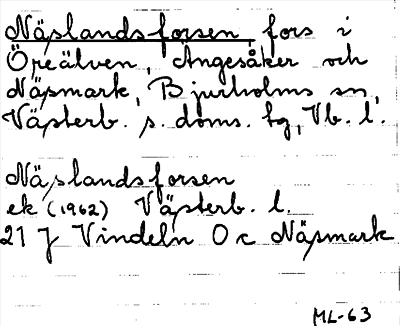 Näslandsforsen, fors i
Öreälven, Ängesåker och
Näsmark, Bjurholms sn,
Västerb. s. doms. tg, Vb. l.
Näslandsforsen
ek (1962) Västerb. l.
21 J Vindeln 0 c Näsmark
ML-63